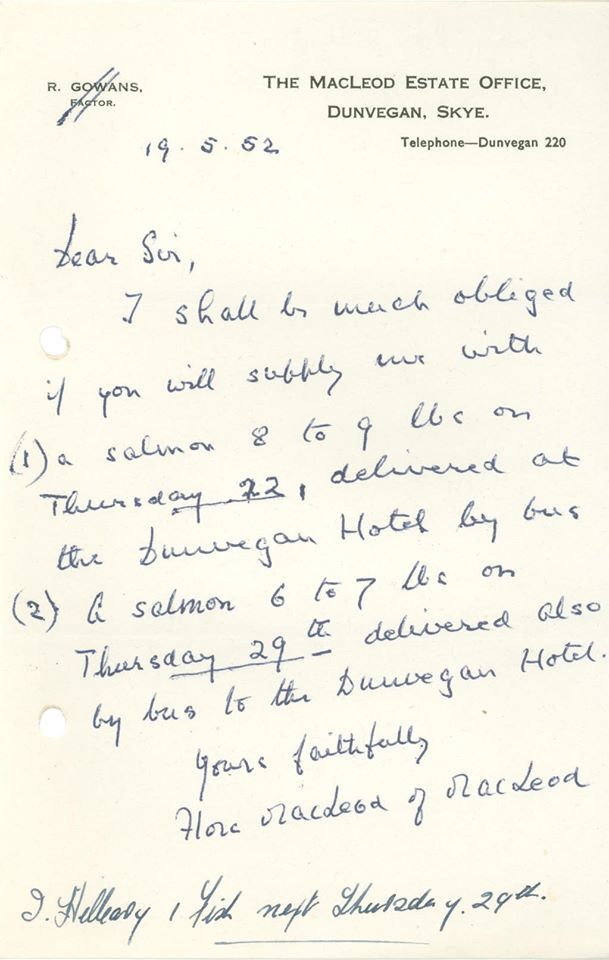 R. GOWANS,
FACTOR.
THE MACLEOD ESTATE OFFICE,
DUNVEGAN, SKYE.
Telephone—Dunvegan 220
19. 5. 52
Dear Sir,
I shall be much obliged
if you will supply me with
(1) a salmon 8 to 9 lbs on
Thursday 22, delivered at
the Dunvegan Hotel by bus
(2) A salmon 6 to 7 lbs on
Thursday 29th delivered also
by bus to the Dunvegan Hotel.
Yours faithfully
Flora MacLeod of MacLeod
1 Fish next Thursday. 29th.